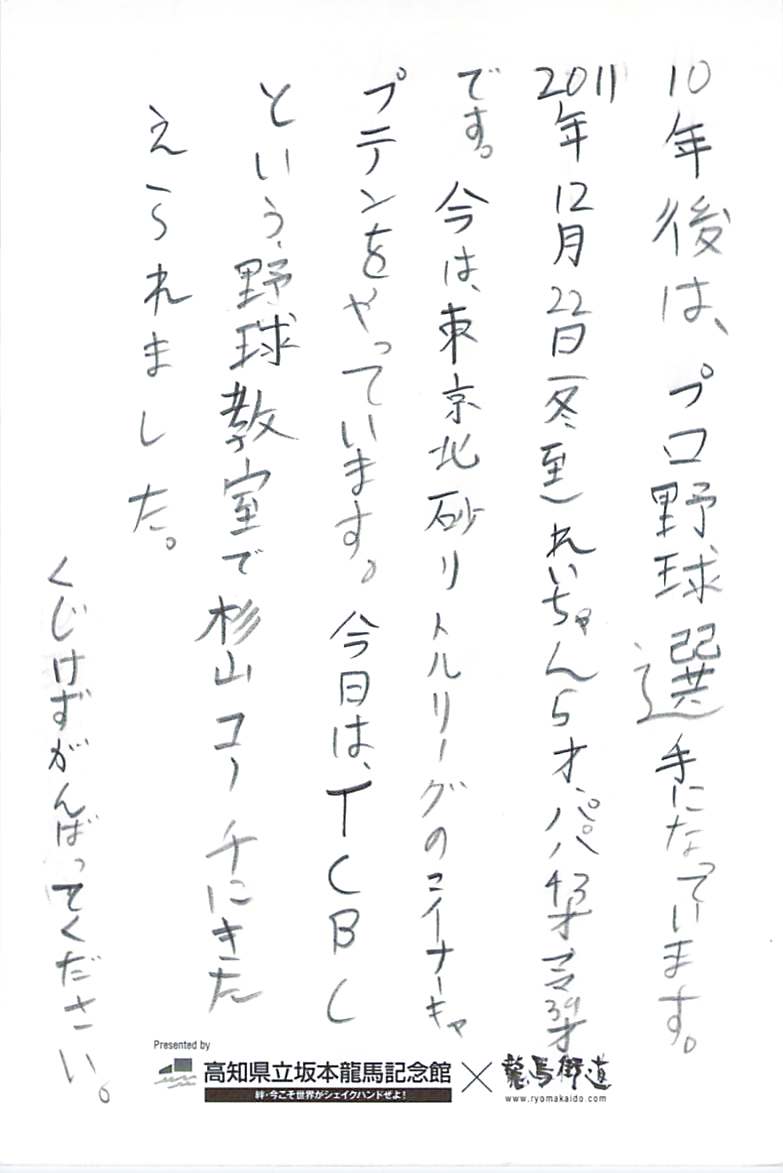 10年後は、プロ野球選手になっています。
2011年12月22日(冬至)れいちゃん5才、パパ43才ママ39才
です。今は、東京北砂リトルリーグのマイナーキャ
プテンをやっています。今日は、TCBC
という、野球教室で杉山コーチにきた
えられました。
くじけずがんばってください。
Presented by
高知県立坂本龍馬記念館×龍馬街道
絆・今こそ世界がシェイクハンドぜよ!
www.ryomakaido.com